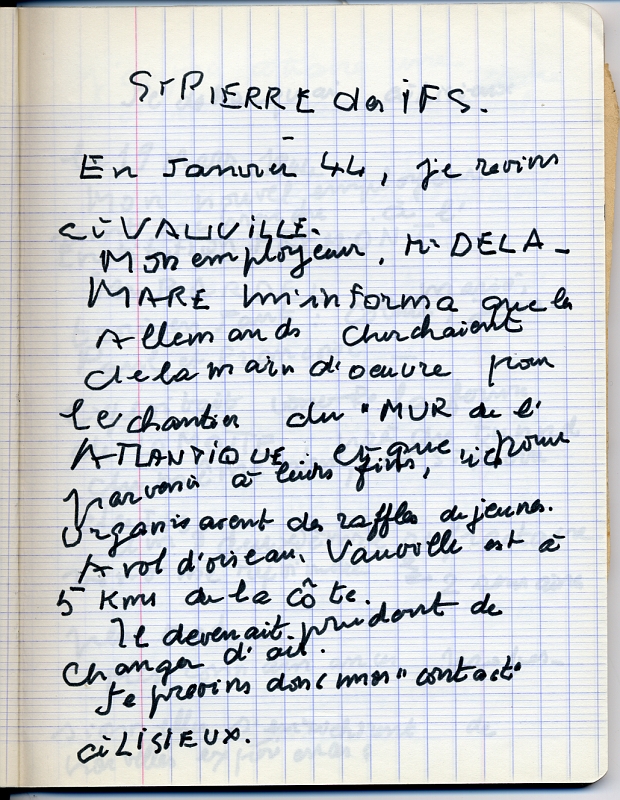 St PIERRE des iFS.
En Janvier 44, je revins
à VAUVILLE.
Mon employeur, Mr DELA-
MARE m'informa que les
Allemands cherchaient
de la main d'oeuvre pour
le chantier du "MUR de l'
ATLANTIQUE et que, pour
parvenir à leurs fins, ils
organisaient des raffles de jeunes.
A vol d'oiseau, Vauville est à
5 Kms de la côte.
Il devenait prudent de
changer d'air.
Je prévins donc mon "contact"
à LISIEUX.